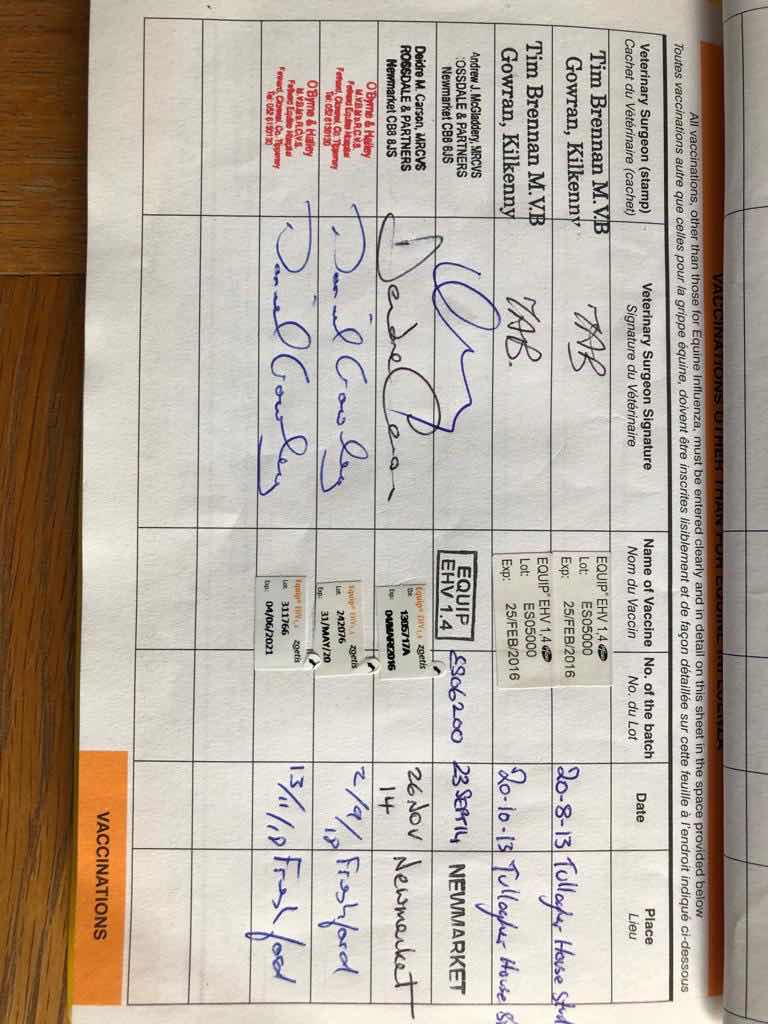 VACCINATIONS OTHER THAN FOR EQUINE INFLUENZA
All vaccinations, other than those for Equine Influenza, must be entered clearly and in detail on this sheet in the space provided below
Toutes vaccinations autre que celles pour la grippe équine, doivent être inscrites lisiblement et de façon détaillée sur cette feuille à l'endroit indiqué ci-dessous
Veterinary Surgeon (stamp)
Cachet du Vétérinaire (cachet)
Veterinary Surgeon Signature
Signature du Vétérinaire
Name of Vaccine
Nom du Vaccin
No. of the batch
No. du Lot
Date
Place
Lieu
Tim Brennan M.V.B
Gowran, Kilkenny
TAB
EQUIP EHV 1,4
Lot: ES05000
Exp: 25/FEB/2016
20-8-13
Tullagher House Stud
Tim Brennan M.V.B
Gowran, Kilkenny
TAB.
EQUIP EHV 1,4
Lot: ES05000
Exp: 25/FEB/2016
20-10-13
Tullagher House
Andrew J. McGladdery, MRCVS
OSSDALE & PARTNERS
Newmarket CB8 8JS
EQUIP
EHV 1.4
ES06200
23 SEP 14
NEWMARKET
Deidre M. Carson, MRCVS
ROSSDALE & PARTNERS
Newmarket CB8 8JS
Deirdre Carson
Equip® EHV 1,4
zoetis
1305717A
Exp: 04MAR2016
26 Nov
14
Newmarket
O'Byrne & Halley
M.V.B.M.R.C.V.S.
Fethard Equine Hospital
Fethard, Clonmel, Co. Tipperary
Tel: 052 6130130
Daniel Crowley
Equip® EHV 1,4
zoetis
Lot: 242076
Exp: 31/MAY/20
2/9/18
Freshford
O'Byrne & Halley
M.V.B.M.R.C.V.S.
Fethard Equine Hospital
Fethard, Clonmel, Co. Tipperary
Tel: 052 6130130
Daniel Crowley
Equip® EHV 1,4
zoetis
Lot: 311766
Exp: 04/06/2021
13/11/18
Freshford
VACCINATIONS